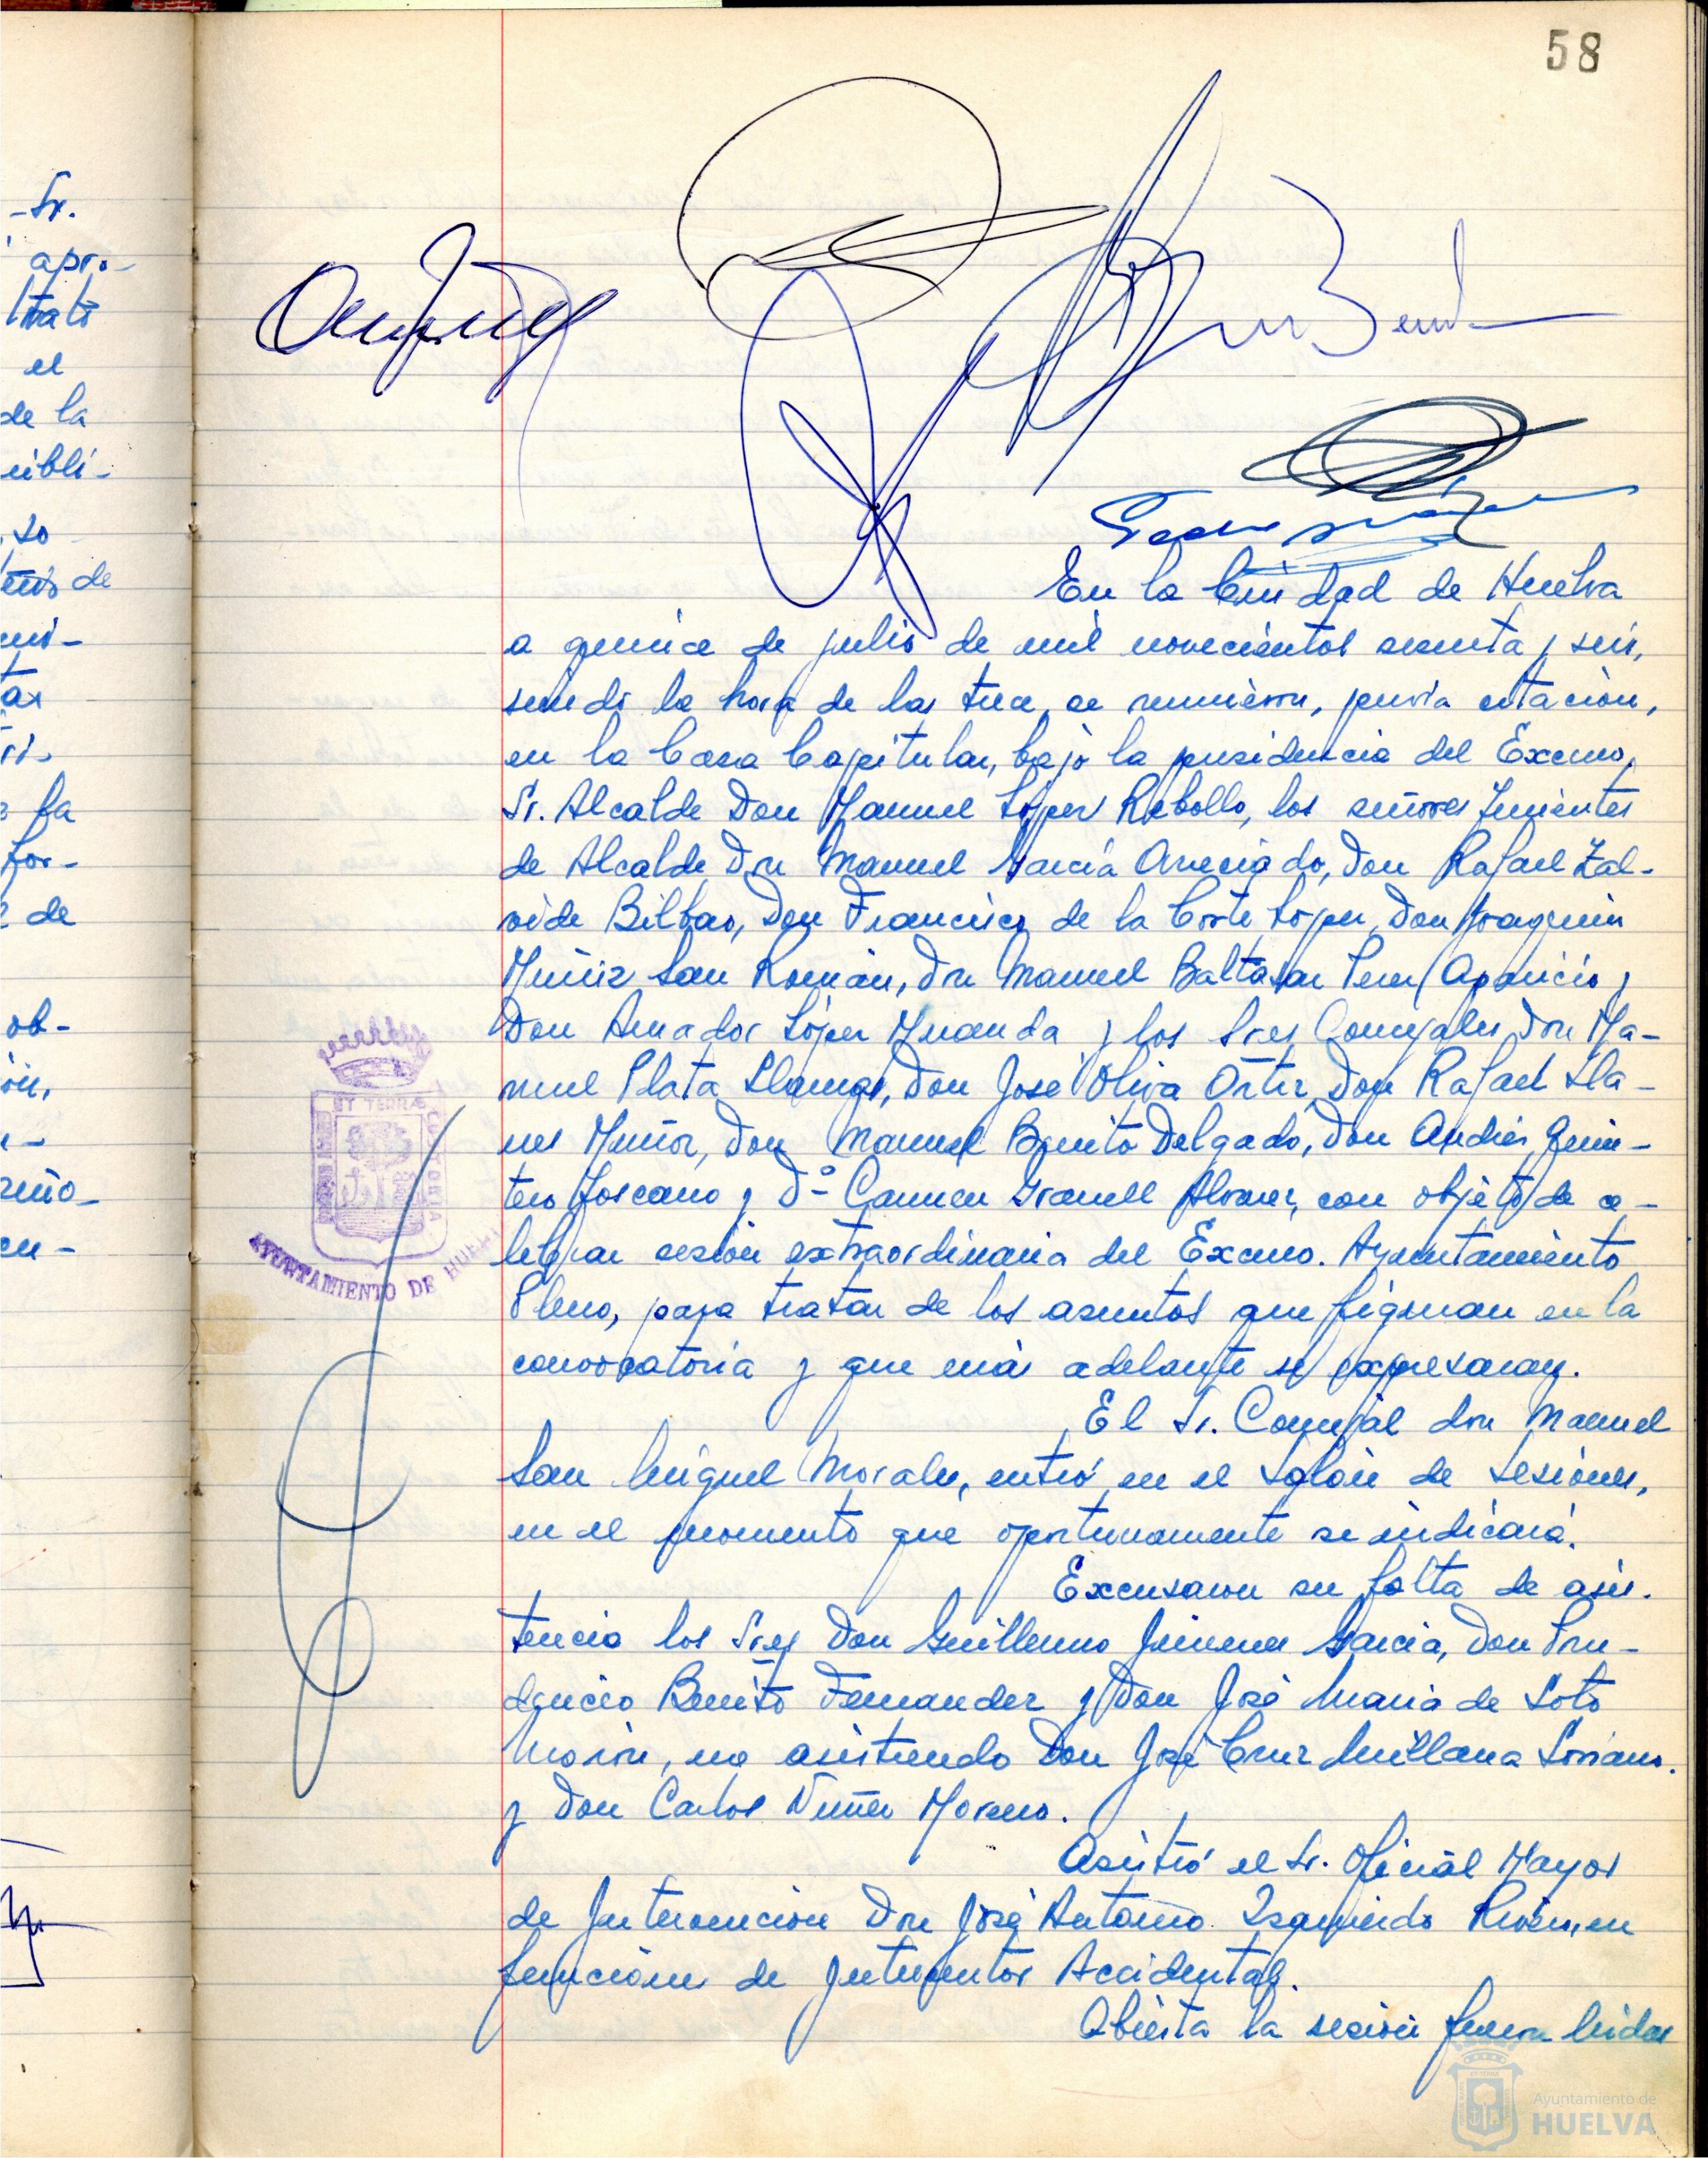 58
-Sr.
apro-
el
de la
to
de
la
for-
de
ob-
En la Ciudad de Huelva
a quince de julio de mil novecientos sesenta y seis,
siendo la hora de las trece, se reunieron, previa citación,
en la Casa Capitular, bajo la presidencia del Excmo.
Sr. Alcalde Don Manuel López Rebollo, los señores Tenientes
de Alcalde Don Manuel García Arreciado, Don Rafael Zal-
vide Bilbao, Don Francisco de la Corte López, Don Joaquín
Muñiz San Román, Don Manuel Baltasar Pérez Aparicio y
Don Amador López Miranda y los Sres Concejales Don Ma-
nuel Plata Llamas, Don José Oliva Ortiz, Don Rafael Lla-
nes Muñoz, Don Manuel Benito Delgado, Don Andrés Quin-
tero Toscano y Dª Carmen Granell Alvarez, con objeto de ce-
lebrar sesión extraordinaria del Excmo. Ayuntamiento
Pleno, para tratar de los asuntos que figuran en la
convocatoria y que más adelante se expresaran.
El Sr. Concejal don Manuel
San Miguel Morales, entró en el salón de sesiones,
en el momento que oportunamente se indicará.
Excusaron su falta de asis-
tencia los Sres Don Guillermo Jimenez García, Don Pru-
dencio Benito Fernandez y Don José Maria de Soto
Morón, no asistiendo Don José Cruz Millana Soriano.
y Don Carlos Núñez Moreno.
Asistió el Sr. Oficial Mayor
de Intervención Don José Antonio Izquierdo Rivón, en
funciones de Interventor Accidental.
Abierta la sesión fueron leidas
ET TERRAE
AYUNTAMIENTO DE HUELVA
Ayuntamiento de
HUELVA